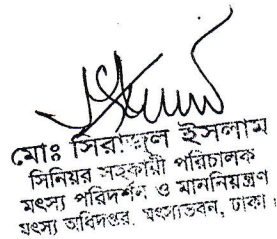 মোঃ সিরাজুল ইসলাম
সিনিয়র সহকারী পরিচালক
মৎস্য পরিদর্শন ও মাননিয়ন্ত্রণ
মৎস্য অধিদপ্তর, মৎস্যভবন, ঢাকা।